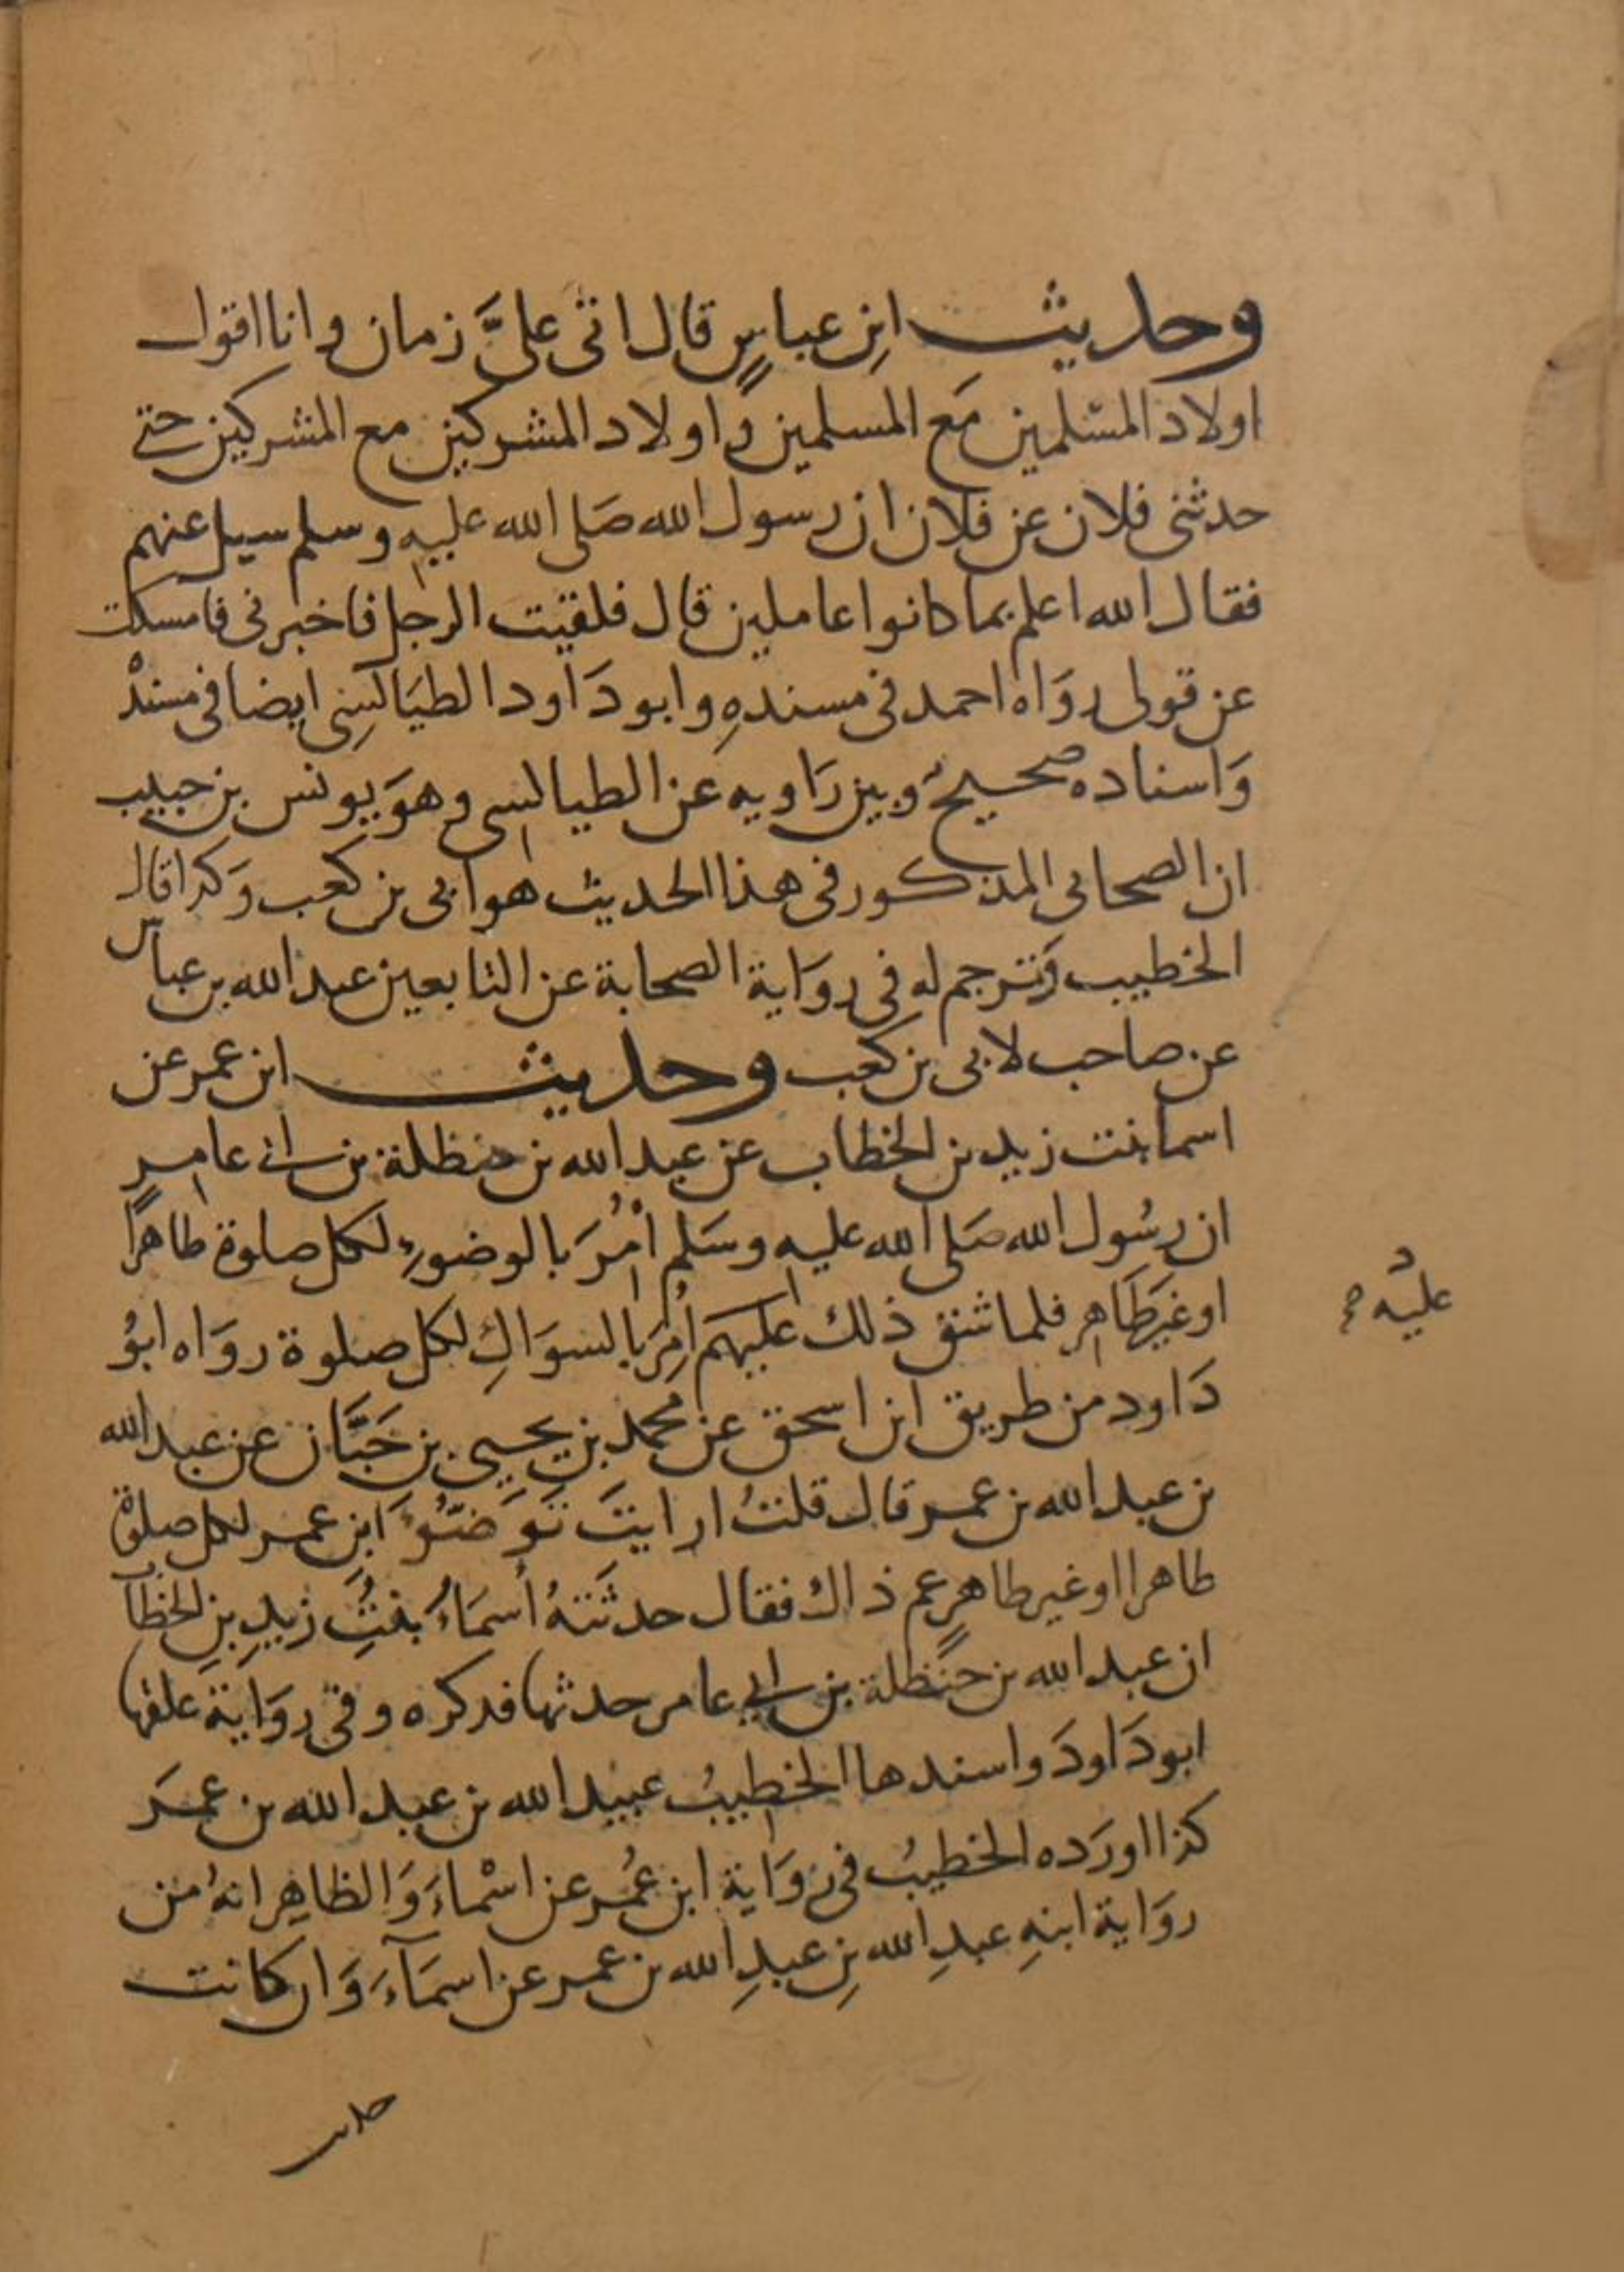 وحديث ابنِ عباسٍ قال اتى عليَّ زمان وانا اقول
اولاد المسلمين مَع المسلمين وَاولاد المشركين مع المشركين حتى
حدثنى فلان عن فلان ان رسول الله صَلى الله عليه وسلم سيل عنهم
فقال الله اعلم بما كانوا عاملين قال فلقيت الرجل فاخبرنى فامسكت
عن قولى روَاه احمد فى مسندهِ وابو دَاود الطيَالسِى ايضا فى مسندْ
وَاسناده صحيحٌ وبين رَاويه عن الطيالسى وهوَ يونس بن حبيب
ان الصحابى المذكور فى هذا الحديث هو ابى بن كعب وَكذا قال
الخطيب وَترجم له فى روَاية الصحابة عن التابعين عبد الله بن عباس
عن صاحب لابى بن كعب وحديث ابن عمر عن
اسما بنت زيد بن الخطاب عن عبد الله بن حنظلة بن ابى عامرٍ
ان رسُول الله صَلى الله عليه وسَلم اُمْرَ بالوضوءِ لكل صلوة طاهرًا
اوغيرَ طَاهر فلما شق ذلك عليهم اُمِرَ بالسوَاكِ لكل صلوة روَاه ابوُ
دَاود من طريق ابن اسحق عن محمد بن يحيى بن حَبَّان عن عبد الله
بن عبد الله بن عمر قال قلتُ ارايتَ تَوَضُّوءَ ابنِ عمر لكل صلوة
طاهرا اوغير طاهرٍ عم ذاك فقال حدثَتنهُ أسمَاءُ بنتُ زيدِ بنِ الخطاَ
ان عبد الله بن حَنظلة بن ابي عامر حدثها فذكره وفى روَاية علقها
ابو دَاودَ واسندها الخطيبُ عبيد الله بن عبد الله بن عمَر
كذا اورَده الخطيبُ فى روَاية ابن عُمر عن اسْماءَ وَالظاهِر انهُ من
روَاية ابنهِ عبدِ الله بنِ عبدِ الله بن عمر عن اسمَآءَ وَان كانت
عليه